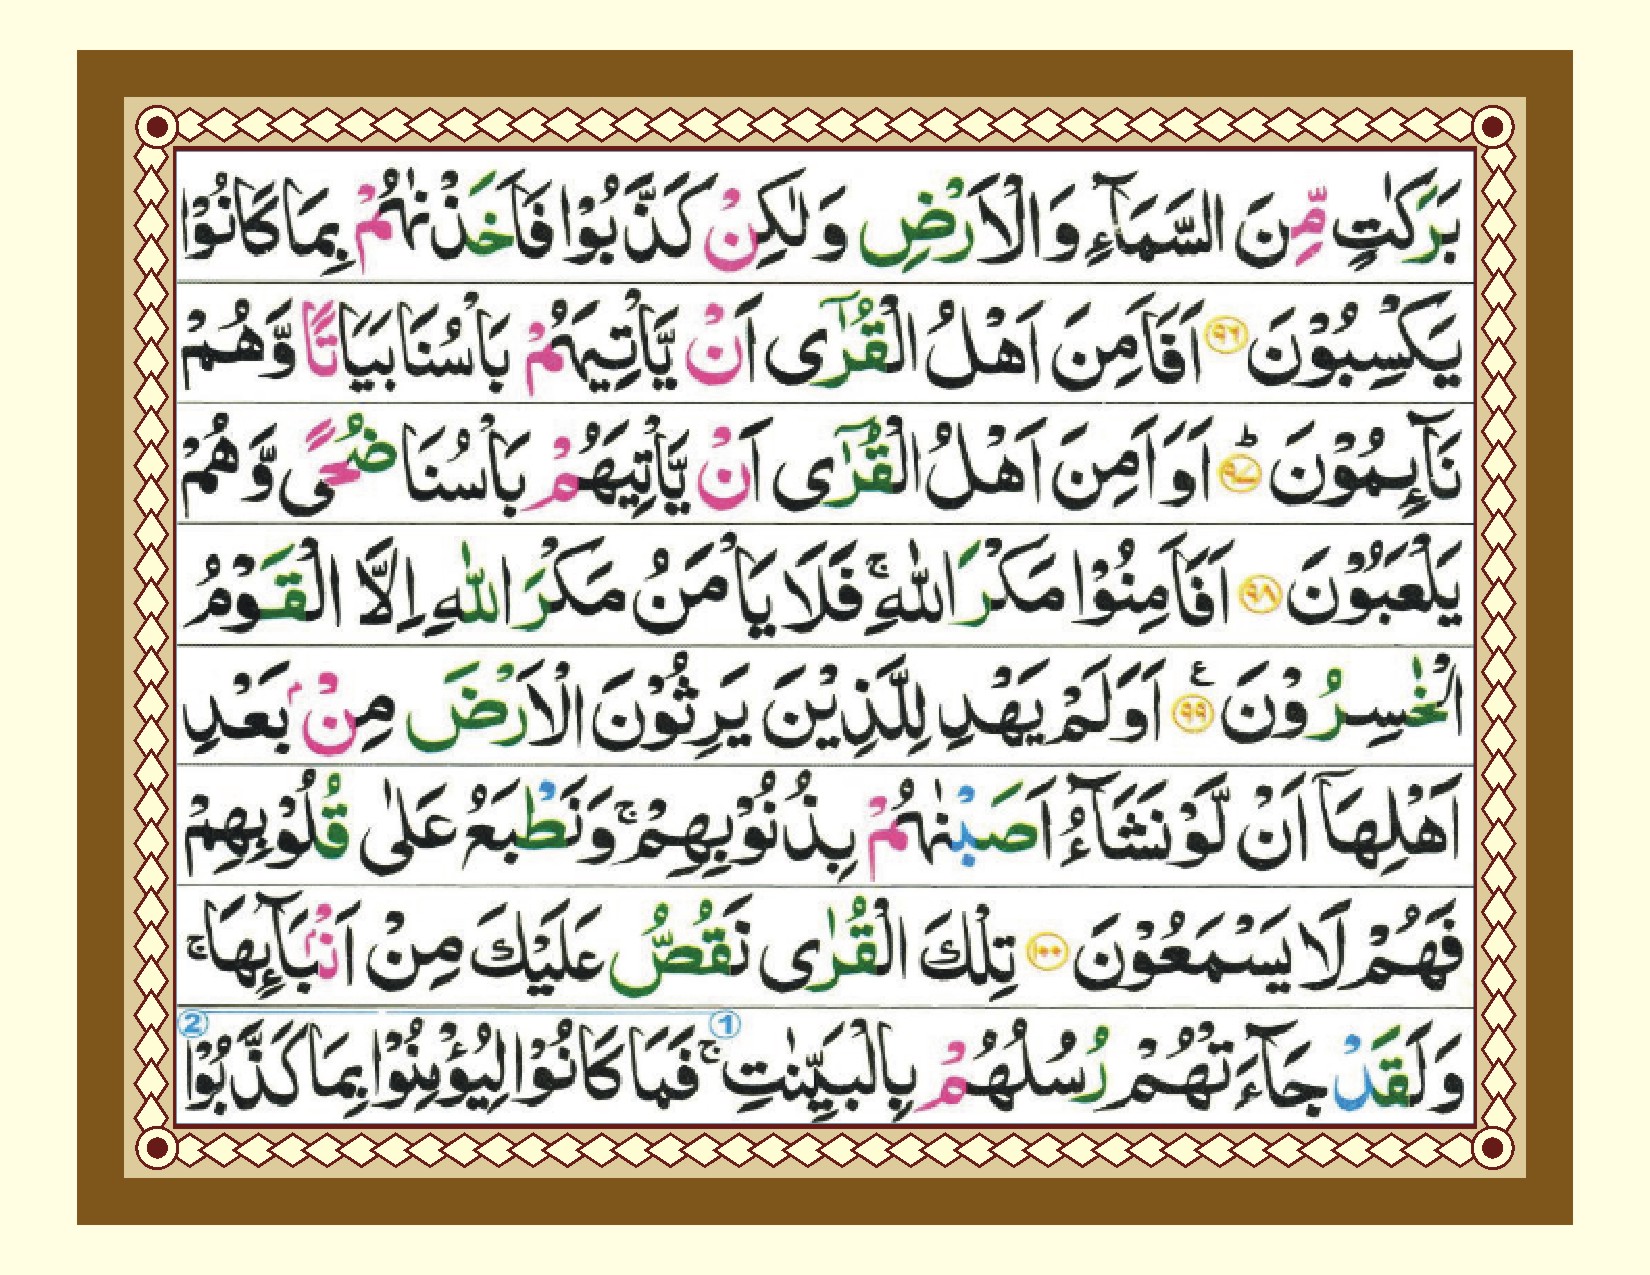 بَرَكٰتٍ مِّنَ السَّمَآءِ وَالْاَرْضِ وَلٰكِنْ كَذَّبُوْا فَاَخَذْنٰهُمْ بِمَا كَانُوْا
يَكْسِبُوْنَ ﴿۹۶﴾ اَفَاَمِنَ اَهْلُ الْقُرٰٓى اَنْ يَّاْتِيَهُمْ بَاْسُنَا بَيَاتًا وَّهُمْ
نَآئِمُوْنَ ﴿۹۷﴾ؕ اَوَاَمِنَ اَهْلُ الْقُرٰٓى اَنْ يَّاْتِيَهُمْ بَاْسُنَا ضُحًى وَّهُمْ
يَلْعَبُوْنَ ﴿۹۸﴾ اَفَاَمِنُوْا مَكْرَ اللّٰهِ ۚ فَلَا يَاْمَنُ مَكْرَ اللّٰهِ اِلَّا الْقَوْمُ
الْخٰسِرُوْنَ ﴿۹۹﴾ؑ اَوَلَمْ يَهْدِ لِلَّذِيْنَ يَرِثُوْنَ الْاَرْضَ مِنْۢ بَعْدِ
اَهْلِهَاۤ اَنْ لَّوْ نَشَآءُ اَصَبْنٰهُمْ بِذُنُوْبِهِمْ ۚ وَنَطْبَعُ عَلٰى قُلُوْبِهِمْ
فَهُمْ لَا يَسْمَعُوْنَ ﴿۱۰۰﴾ تِلْكَ الْقُرٰى نَقُصُّ عَلَيْكَ مِنْ اَنْۢبَآئِهَا ۚ
وَلَقَدْ جَآءَتْهُمْ رُسُلُهُمْ بِالْبَيِّنٰتِ ۚ ① فَمَا كَانُوْا لِيُؤْمِنُوْا بِمَا كَذَّبُوْا ②